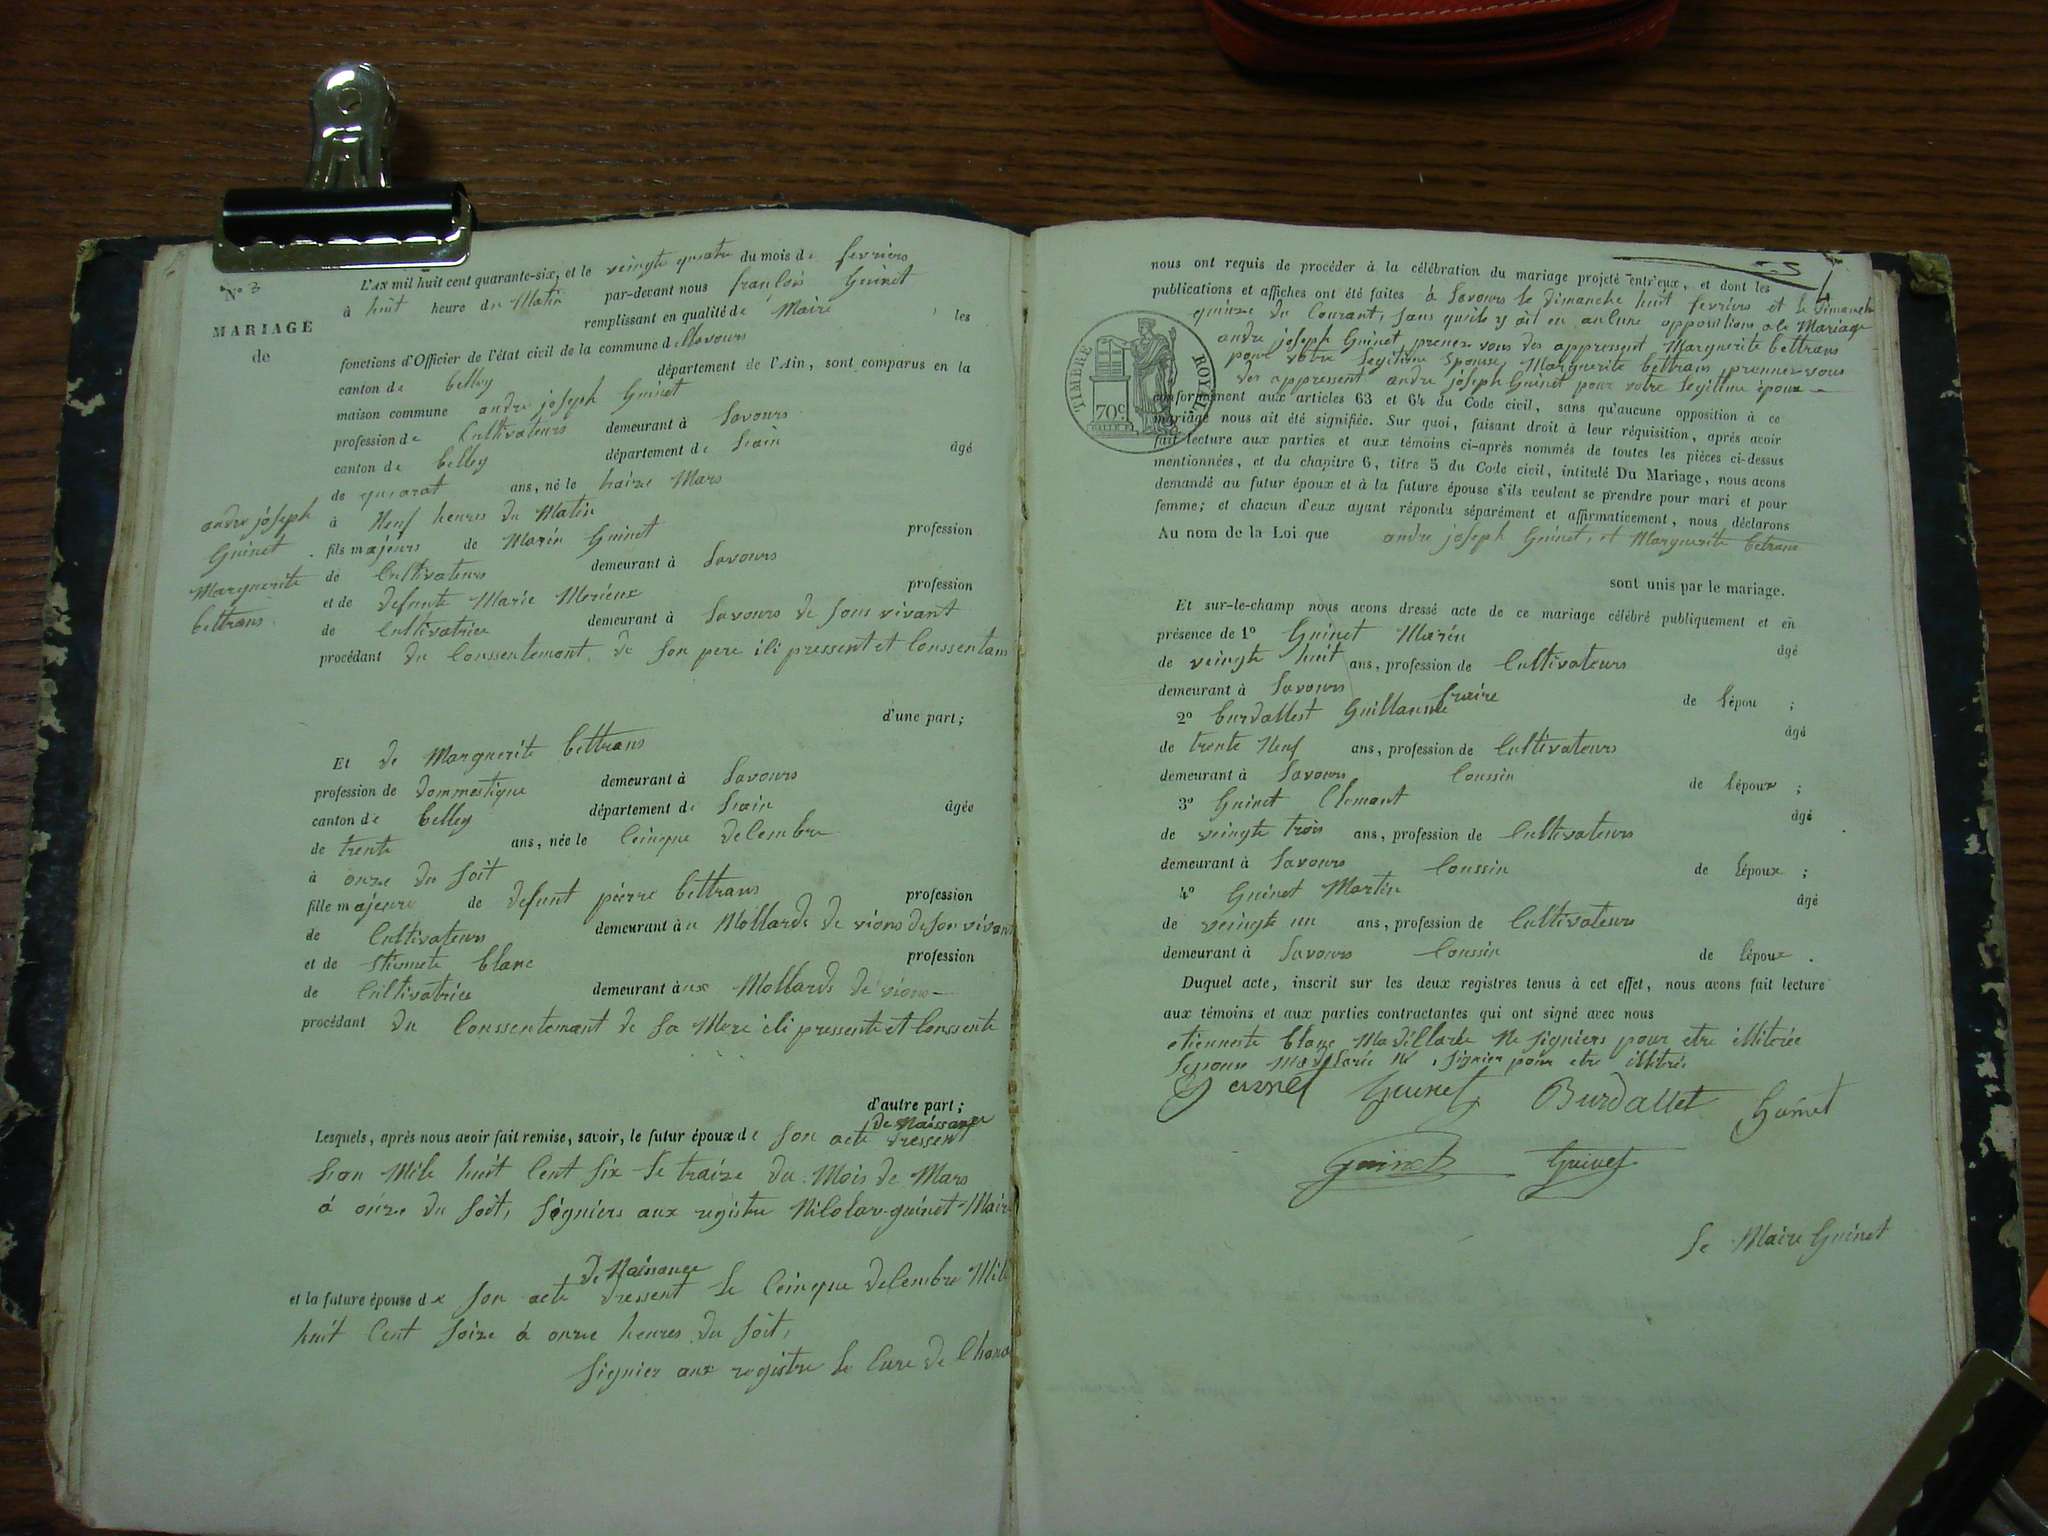 N° 3
MARIAGE
de
andre joseph
Guinet
Marguerite
bettrans
L'AN mil huit cent quarante-six, et le veingte quatre du mois de fevriers
à huit heure du Matin par-devant nous françois Guinet
remplissant en qualité de Maire les
fonctions d'Officier de l'état civil de la commune d
canton de belley département de l'Ain, sont comparus en la
maison commune andre joseph Guinet
profession de Cultivateurs demeurant à Savours
canton de belley département de Lain âgé
de quarat ans, né le traize Mars
à Neuf heures du Matin
fils majeurs de Marin Guinet profession
de Cultivateurs demeurant à Savours
et de defunte Marie Merieux profession
de Cultivatrice demeurant à Savours de sons vivant
procédant du Conssentemont de son pere ili pressent et Conssentans
d'une part;
Et de Marguerite bettrans
profession de dommestique demeurant à Savours
canton de belley département de Lain âgée
de trente ans, née le Ceinque decembre
à onze du soit
fille majeure de defunt pierre bettrans profession
de Cultivateurs demeurant à u Mollards de vions de son vivant
et de blanc profession
de Cultivatrice demeurant à ux Mollards de vions
procédant du Conssentemant de sa Mere ili pressente et Conssente
d'autre part;
de Naissance
Lesquels, après nous avoir fait remise, savoir, le futur époux de son acte dressent
Lan Mile huit Cent six le traize du Mois de Mars
à onze du soit, signiers aux registre guinet Maire
de Naisance
et la future épouse de son acte dressent le Ceinque decembre Mile
huit Cent soize à onze heures du soit,
signier aux registre le Cure de
5
nous ont requis de procéder à la célébration du mariage projeté entr'eux, et dont les
publications et affiches ont été faites à Savours le dimanche huit fevriers et le dimanche
quinze du Courant, sans quile y ait eu aucune oppositions a le Mariage
andre joseph Guinet, prenez vous des appressent Marguerite bettrans
pour votre legitime Epouse, Marguerite bettrans prennez vous
des appressent andre joseph Guinet pour votre legitime époux
TIMBRE ROYAL
70c
conformément aux articles 63 et 64 du Code civil, sans qu'aucune opposition à ce
mariage nous ait été signifiée. Sur quoi, faisant droit à leur réquisition, après avoir
fait lecture aux parties et aux témoins ci-après nommés de toutes les pièces ci-dessus
mentionnées, et du chapitre 6, titre 5 du Code civil, intitulé Du Mariage, nous avons
demandé au futur époux et à la future épouse s'ils veulent se prendre pour mari et pour
femme; et chacun d'eux ayant répondu séparément et affirmaticement, nous déclarons
Au nom de la Loi que andre joseph Guinet, et Marguerite betrans
sont unis par le mariage.
Et sur-le-champ nous avons dressé acte de ce mariage célébré publiquement et en
présence de 1° Guinet Marin âgé
de veingte huit ans, profession de Cultivateurs
demeurant à Savours fraire de lépou ;
2° burdallest Guillaume âgé
de trente Neuf ans, profession de Cultivateurs
demeurant à Savours Coussin de lépoux ;
3° Guinet Clemant âgé
de veingte trois ans, profession de Cultivateurs
demeurant à Savours Coussin de lépoux ;
4° Guinet Martin âgé
de veingte un ans, profession de Cultivateurs
demeurant à Savours Coussin de lépoux .
Duquel acte, inscrit sur les deux registres tenus à cet effet, nous avons fait lecture
aux témoins et aux parties contractantes qui ont signé avec nous
blanc Ne signiers pour etre illiterée
signier pour etre
Guinet Burdallet Guinet
Guinet Guinet
Le Maire Guinet